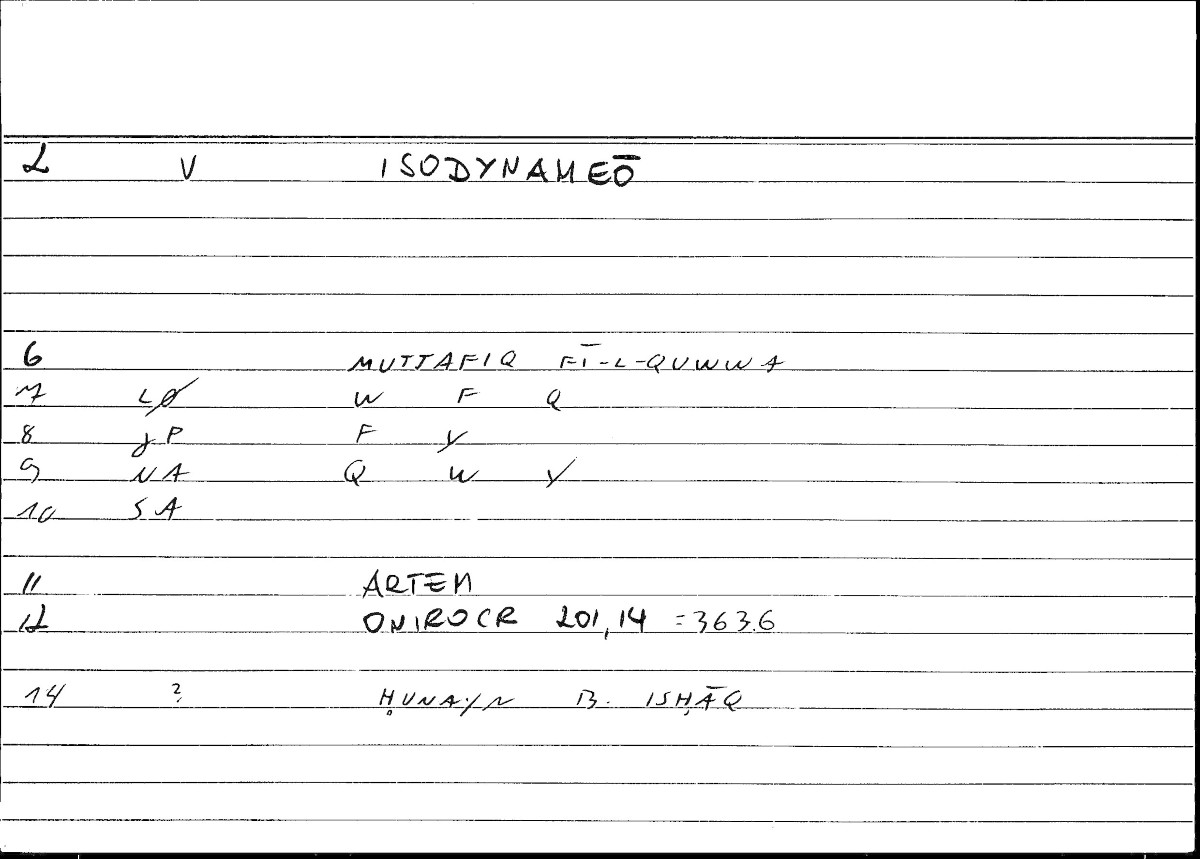 2 V ISODYNAMEŌ
6 MUTTAFIQ FĪ-L-QUWWA
7 LØ W F Q
8 gP F Y
9 NA Q W Y
10 SA
11 ARTEM
12 ONIROCR 201,14 =363.6
14 ? ḤUNAYN B. ISḤĀQ